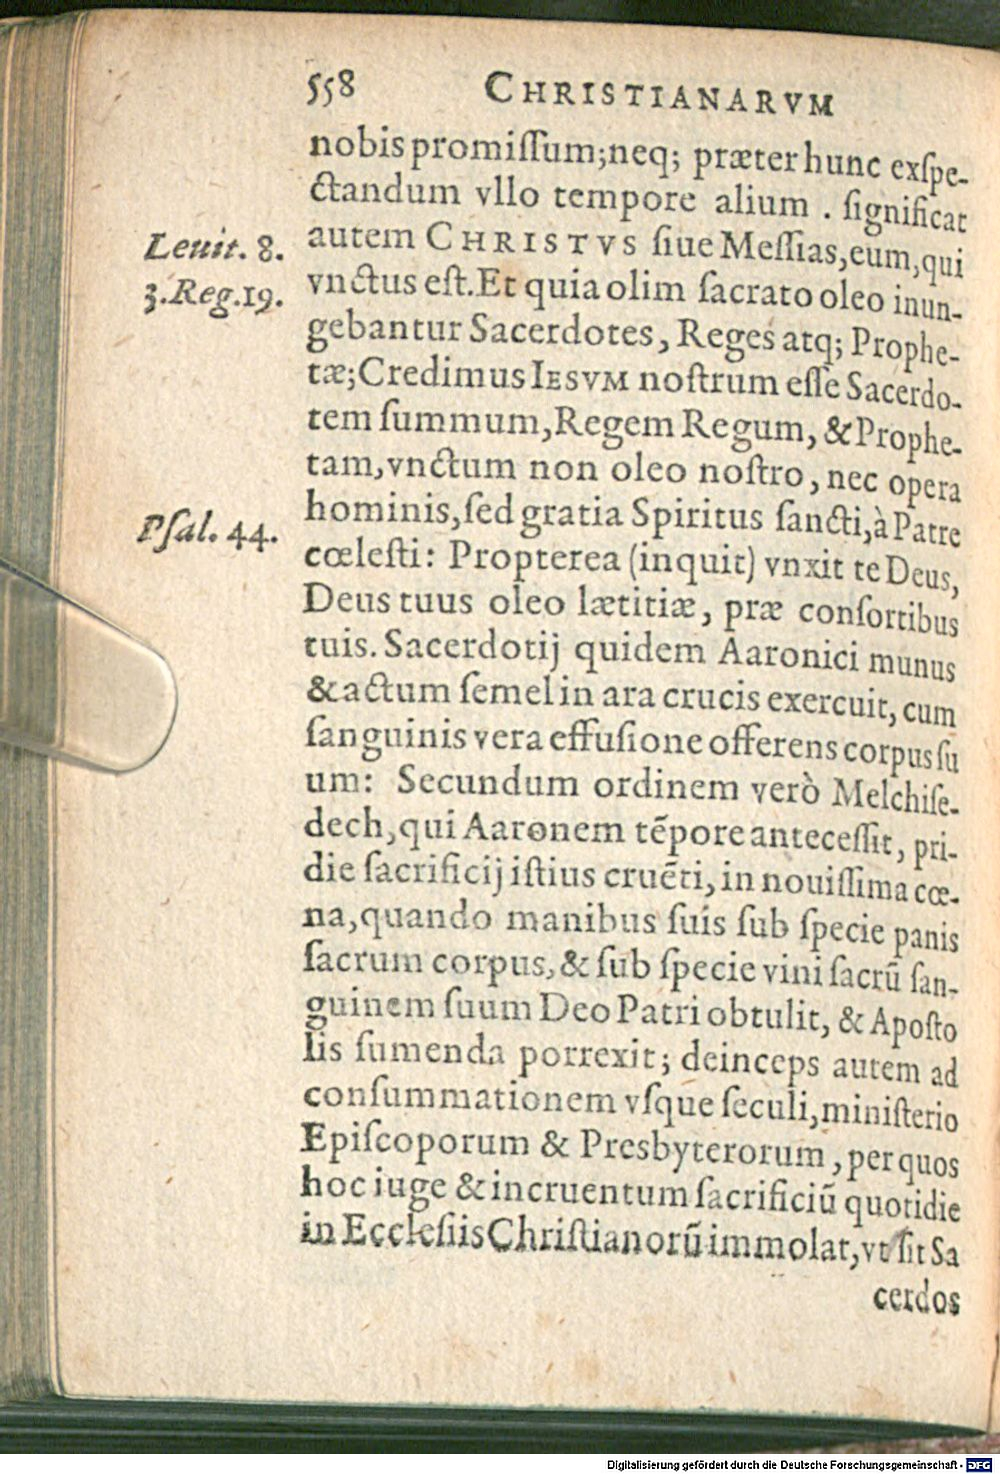 558 CHRISTIANARVM
nobis promiſſum; neq; præter hunc exſpe-
ctandum vllo tempore alium . ſignificat
Leuit. 8.
autem CHRISTVS ſiue Meſſias, eum, qui
3. Reg. 19.
vnctus eſt. Et quia olim ſacrato oleo inun-
gebantur Sacerdotes, Reges atq; Prophe-
tæ; Credimus IESVM noſtrum eſſe Sacerdo-
tem ſummum, Regem Regum, & Prophe-
tam, vnctum non oleo noſtro, nec opera
hominis, ſed gratia Spiritus ſancti, à Patre
Pſal. 44.
cœleſti: Propterea (inquit) vnxit te Deus,
Deus tuus oleo lætitiæ, præ conſortibus
tuis. Sacerdotij quidem Aaronici munus
& actum ſemel in ara crucis exercuit, cum
ſanguinis vera effuſione offerens corpus ſu
um: Secundum ordinem verò Melchiſe-
dech, qui Aaronem tẽpore anteceſſit, pri-
die ſacrificij iſtius cruẽti, in nouiſſima cœ-
na, quando manibus ſuis ſub ſpecie panis
ſacrum corpus, & ſub ſpecie vini ſacrũ ſan-
guinem ſuum Deo Patri obtulit, & Apoſto
lis ſumenda porrexit; deinceps autem ad
conſummationem vſque ſeculi, miniſterio
Epiſcoporum & Presbyterorum, per quos
hoc iuge & incruentum ſacrificiũ quotidie
in Eccleſiis Chriſtianorũ immolat, vt ſit Sa
cerdos
Digitalisierung gefördert durch die Deutsche Forschungsgemeinschaft - DFG